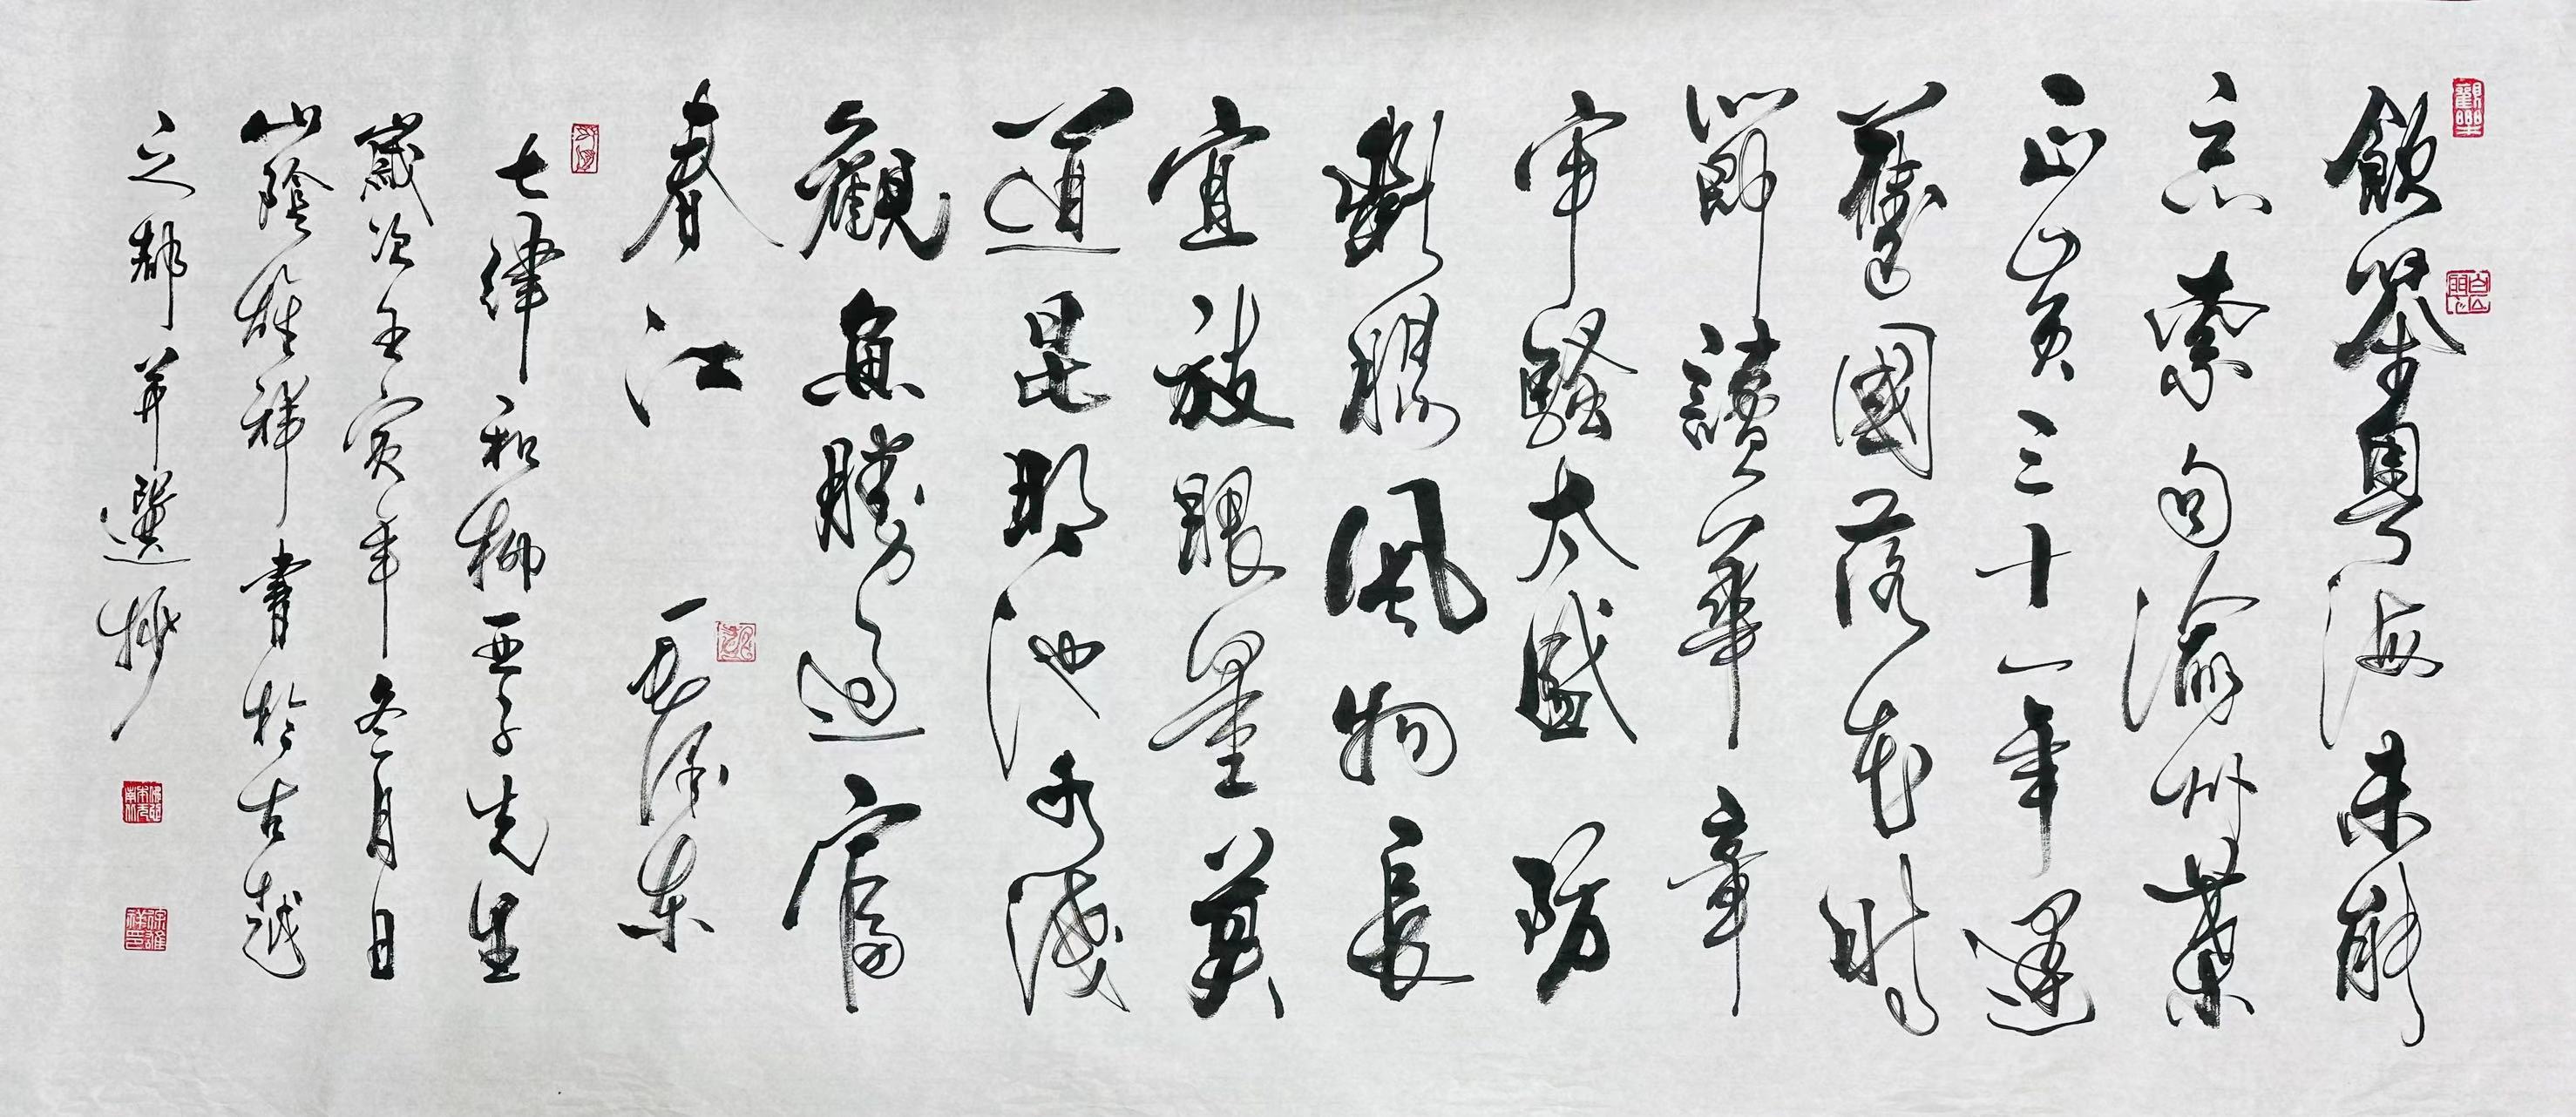 飲茶粵海未能
忘索句渝州葉
正黃三十一年還
舊國落花時
節讀華章
牢騷太盛防
斷腸風物長
宜放眼量莫
道昆明池水淺
觀魚勝過富
春江 毛澤東
七律和柳亞子先生
歲次壬寅年冬月日
山陰雄祥書於古越
之都并選抄
徐雄祥印